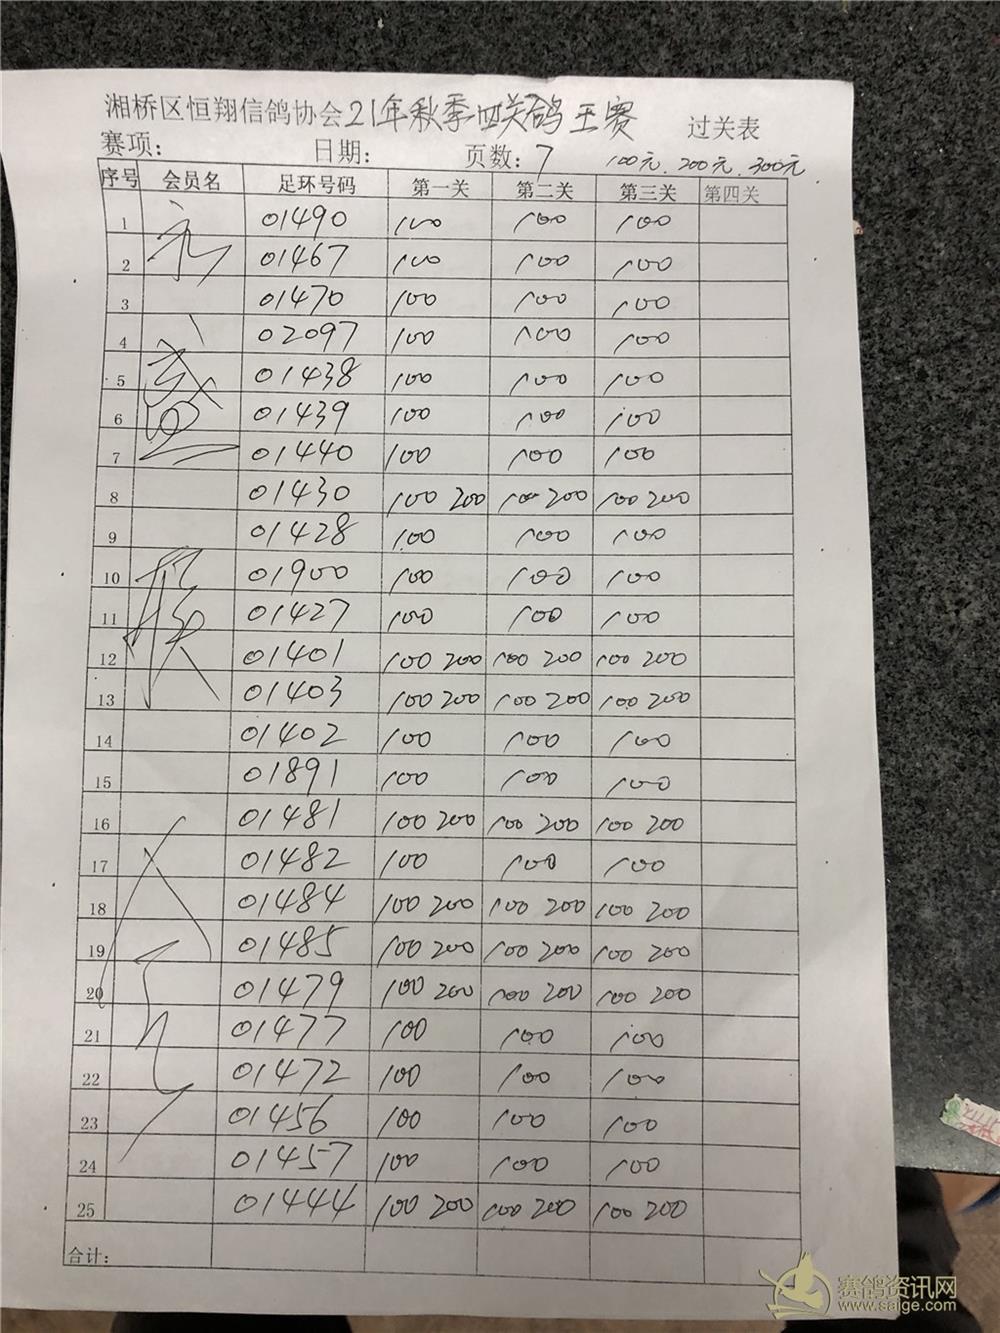 湘桥区恒翔信鸽协会21年秋季四关鸽王赛 过关表
赛项： 日期： 页数：7 100元.200元.300元
序号 会员名 足环号码 第一关 第二关 第三关 第四关
1 01490 100 100 100
2 01467 100 100 100
3 01470 100 100 100
4 02097 100 100 100
5 01438 100 100 100
6 01439 100 100 100
7 01440 100 100 100
8 01430 100 200 100 200 100 200
9 01428 100 100 100
10 01900 100 100 100
11 01427 100 100 100
12 01401 100 200 100 200 100 200
13 01403 100 200 100 200 100 200
14 01402 100 100 100
15 01891 100 100 100
16 01481 100 200 100 200 100 200
17 01482 100 100 100
18 01484 100 200 100 200 100 200
19 01485 100 200 100 200 100 200
20 01479 100 200 100 200 100 200
21 01477 100 100 100
22 01472 100 100 100
23 01456 100 100 100
24 01457 100 100 100
25 01444 100 200 100 200 100 200
合计：
赛鸽资讯网
www.saige.com